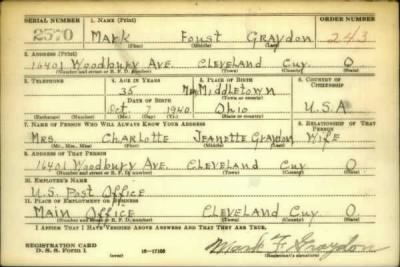 SERIAL NUMBER 1. NAME (Print) ORDER NUMBER
2570 Mark Foust Graydon 243
(First) (Middle) (Last)
2. ADDRESS (Print)
16401 Woodbury Ave. Cleveland Cuy. O
(Number and street or R. F. D. number) (Town) (County) (State)
3. TELEPHONE 4. AGE IN YEARS 5. PLACE OF BIRTH 6. COUNTRY OF CITIZENSHIP
35 Middletown
DATE OF BIRTH (Town or county)
Oct 7 1940 Ohio U.S.A
(Exchange) (Number) (Mo.) (Day) (Yr.) (State or country)
7. NAME OF PERSON WHO WILL ALWAYS KNOW YOUR ADDRESS 8. RELATIONSHIP OF THAT PERSON
Mrs. Charlotte Jeanette Graydon Wife
(Mr., Mrs., Miss) (First) (Middle) (Last)
9. ADDRESS OF THAT PERSON
16401 Woodbury Ave. Cleveland Cuy O
(Number and street or R. F. D. number) (Town) (County) (State)
10. EMPLOYER'S NAME
U.S. Post Office
11. PLACE OF EMPLOYMENT OR BUSINESS
Main Office Cleveland Cuy. O
(Number and street or R. F. D. number) (Town) (County) (State)
I AFFIRM THAT I HAVE VERIFIED ABOVE ANSWERS AND THAT THEY ARE TRUE.
REGISTRATION CARD
D. S. S. Form 1 16-17105 Mark F. Graydon
(over) (Registrant's signature)